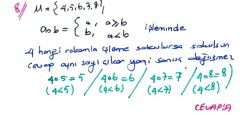 8) M = {4,5,6,7,8}
a o b = { a, a≥b
b, a<b işleminde
4 hangi rakamla işleme sokulursa sokulsun
cevap aynı sayı çıkar yani sonuç değişmez
4o5=5 / 4o6=6 / 4o7=7 / 4o8=8
(4<5) (4<6) (4<7) (4<8)
CEVAP:4